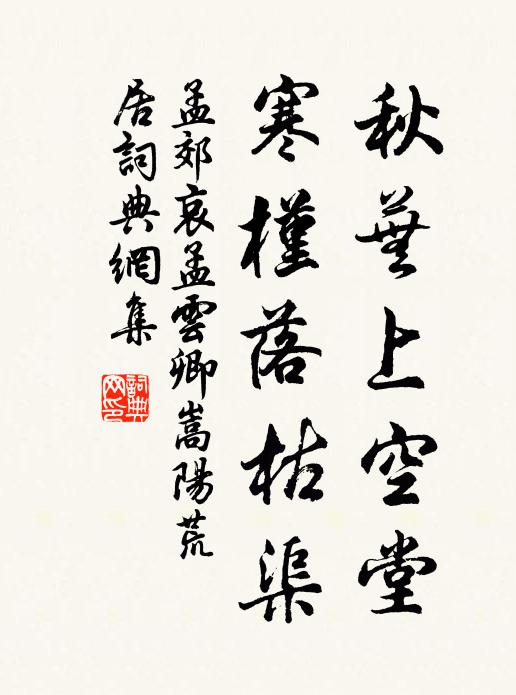 秋蕪上空堂
寒槿落枯渠
孟郊哀孟雲卿嵩陽荒
居詞典網集
詞典
网印